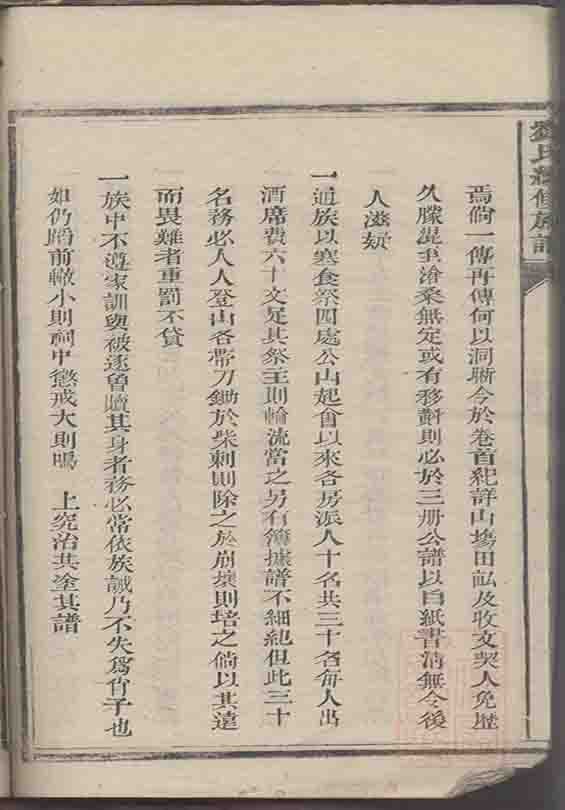 劉氏續修族譜
焉倘一傳再傳何以洞晰今於卷首紀詳山塲田畝及收支契人免歷
久朦混至滄桑無定或有移對則必於三册公譜以白紙書清無令後
人滋疑
一通族以寒食祭四處公山起會以來各房派人十名共三十名每人出
酒席費六十文足其祭主則輪流當之另有簿據譜不細紀但此三十
名務必人人登山各帶刀鋤於柴刺則除之於崩壞則培之倘以其遠
而畏難者重罰不貸
一族中不遵家訓與被逐曾贖其身者務必常依族誡乃不失爲肖子也
如仍蹈前轍小則祠中懲戒大則鳴 上究治共塗其譜